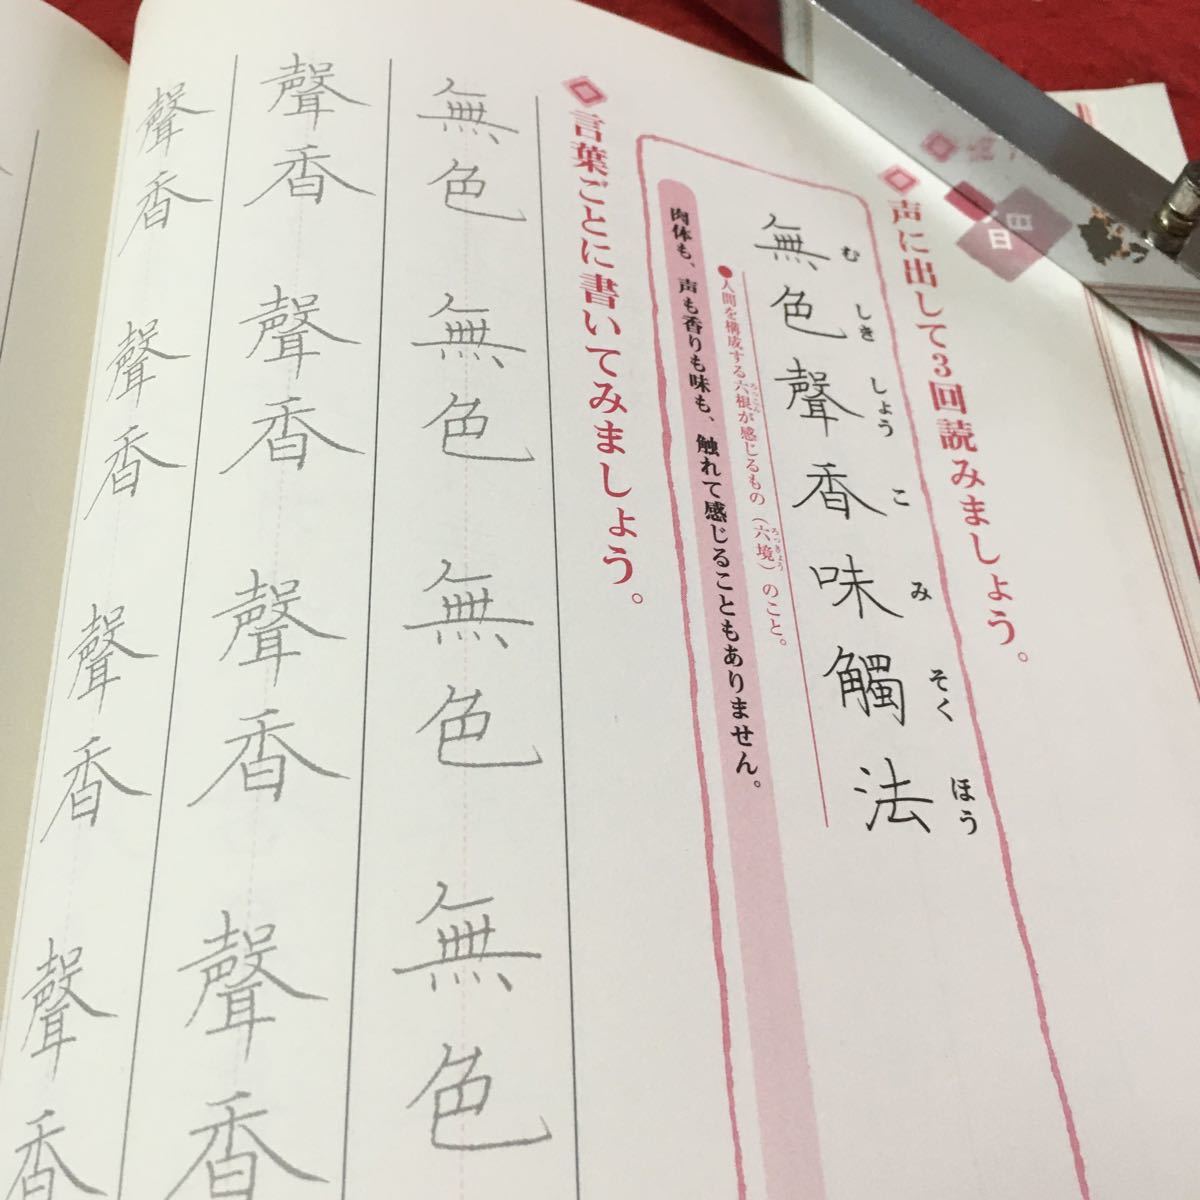 声に出して3回読みましょう。
無色聲香味觸法
む しき しょう こ み そく ほう
●人間を構成する六根が感じるもの(六境)のこと。
ろっこん
ろっきょう
肉体も、声も香りも味も、触れて感じることもありません。
言葉ごとに書いてみましょう。
無色 無色 無色 無色
聲香 聲香 聲香 聲香
聲香 聲香 聲香 聲香